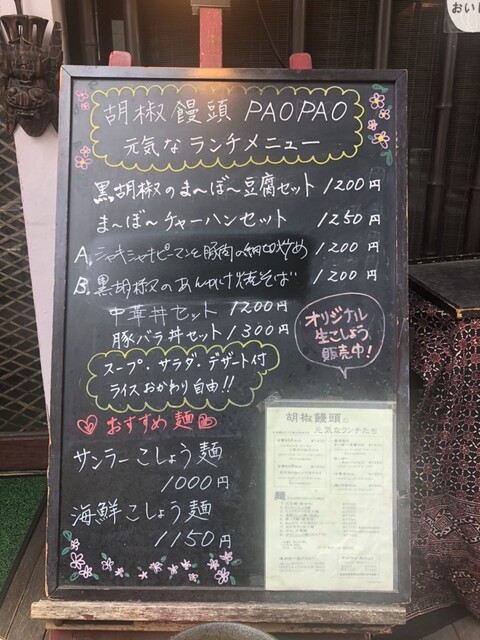 おい
胡椒饅頭 PAOPAO
元気なランチメニュー
黒胡椒のま〜ぼ〜豆腐セット 1200円
ま〜ぼ〜チャーハンセット 1250円
A. シャキシャキピーマンと豚肉の細切炒め 1200円
B. 黒胡椒のあんかけ焼そば 1200円
中華丼セット 1200円
豚バラ丼セット 1300円
オリジナル
生こしょう
販売中!
スープ・サラダ・デザート付
ライスおかわり自由!!
おすすめ麺
サンラーこしょう麺
1000円
海鮮こしょう麺
1150円
胡椒饅頭の
元気なランチたち
麺